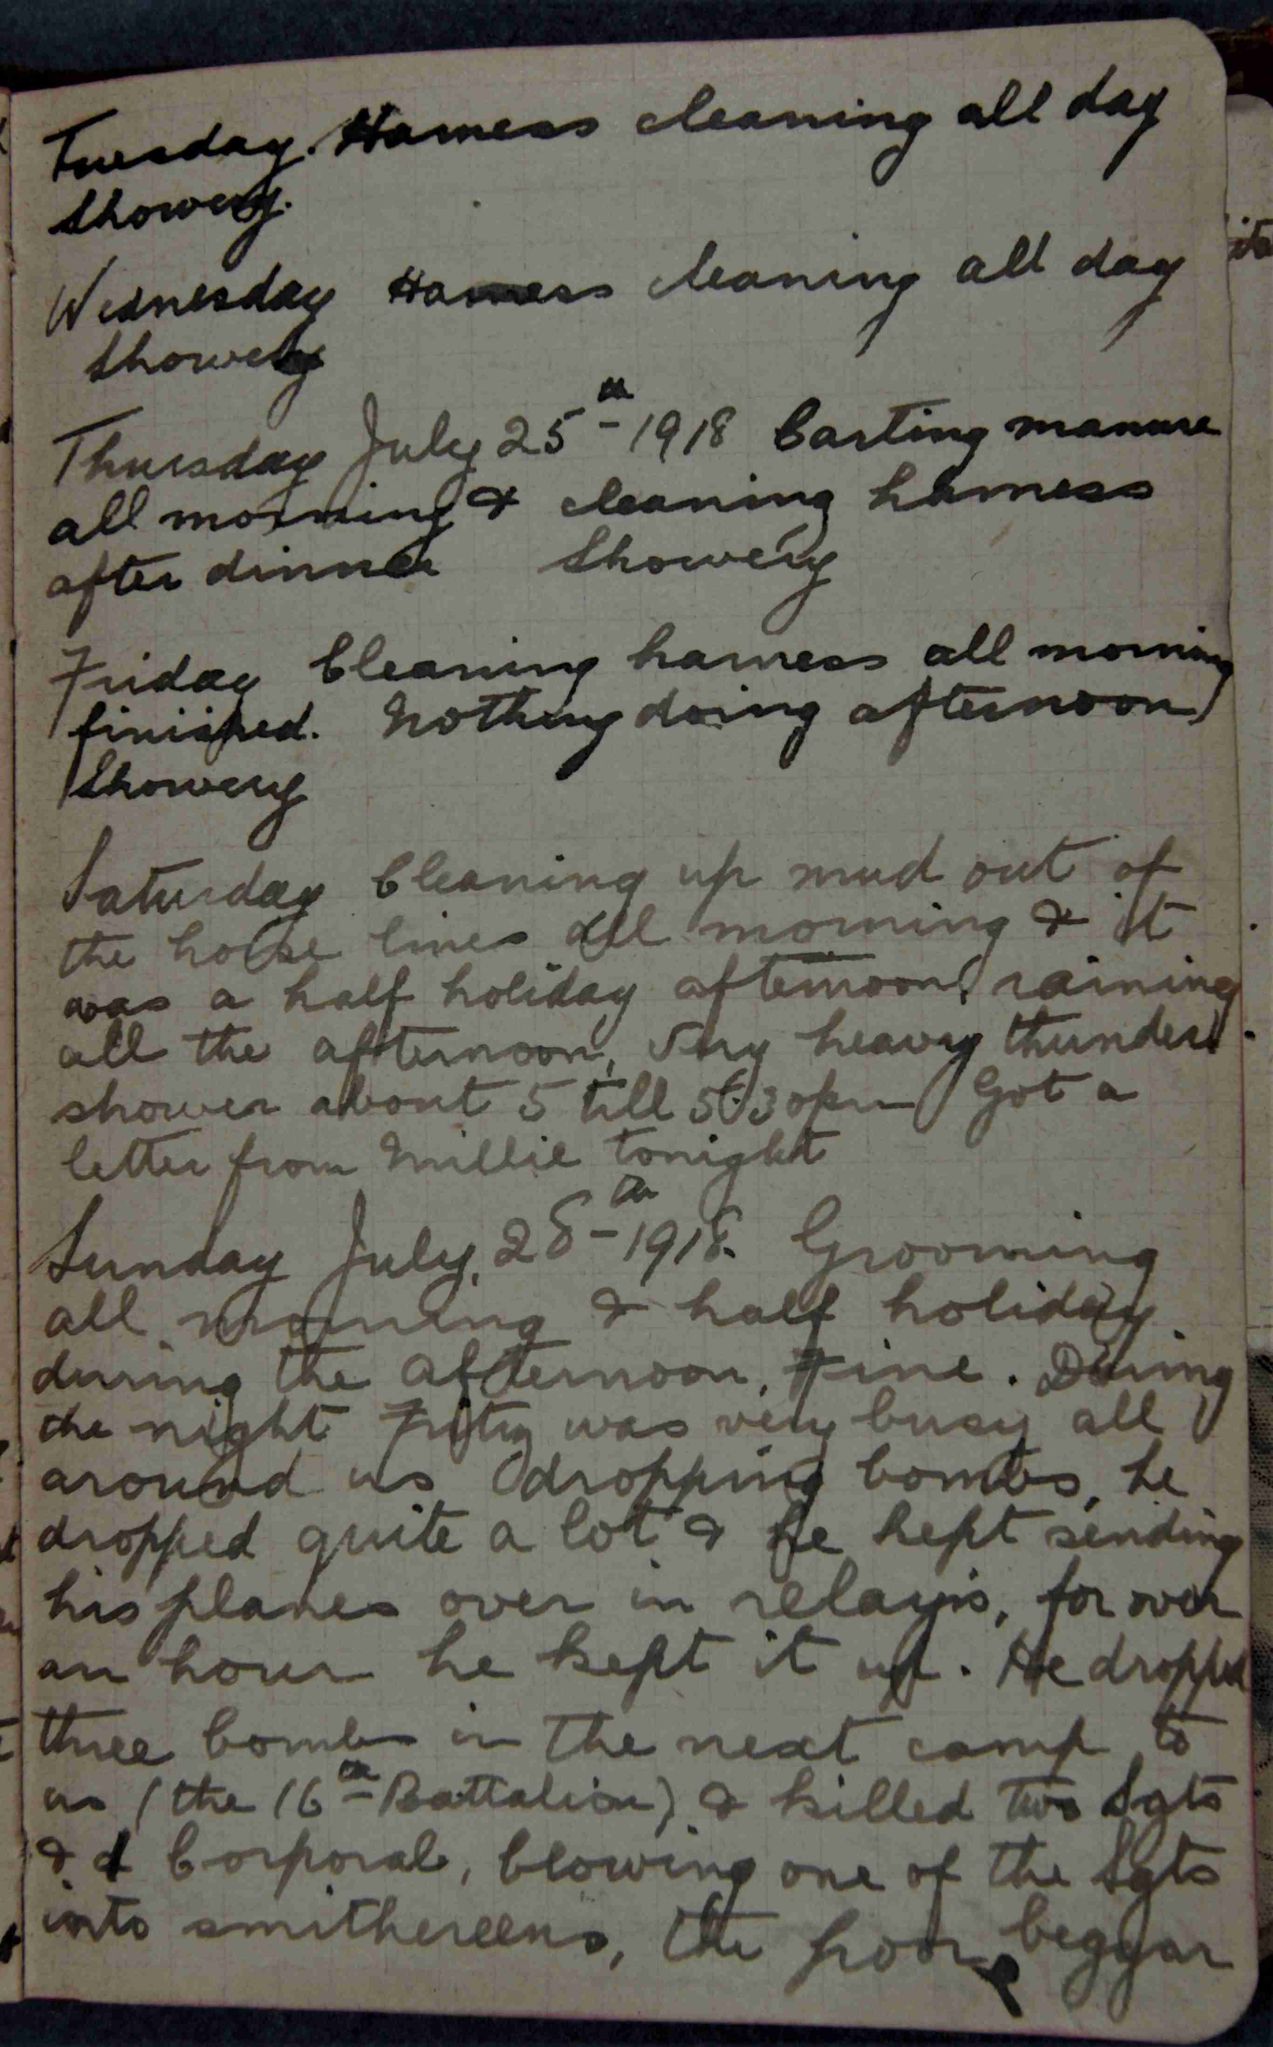 Tuesday. Harness cleaning all day
Showery.
Wednesday Harness cleaning all day
Showery
Thursday July 25th 1918 Carting manure
all morning & cleaning harness
after dinner Showery
Friday Cleaning harness all morning
finished. Nothing doing afternoon
Showery
Saturday Cleaning up mud out of
the horse lines all morning & it
was a half holiday afternoon, raining
all the afternoon, very heavy thunder
shower about 5 till 5.30pm Got a
letter from Millie tonight
Sunday July, 28th 1918. Grooming
all morning & half holiday
during the afternoon, Fine. During
the night Fritz was very busy all
around us dropping bombs, he
dropped quite a lot & he kept sending
his planes over in relays, for over
an hour he kept it up. He dropped
three bombs in the next camp to
us (the 16th Battalion) & killed two Sgts
& a Corporal, blowing one of the Sgts
into smithereens, the poor beggar